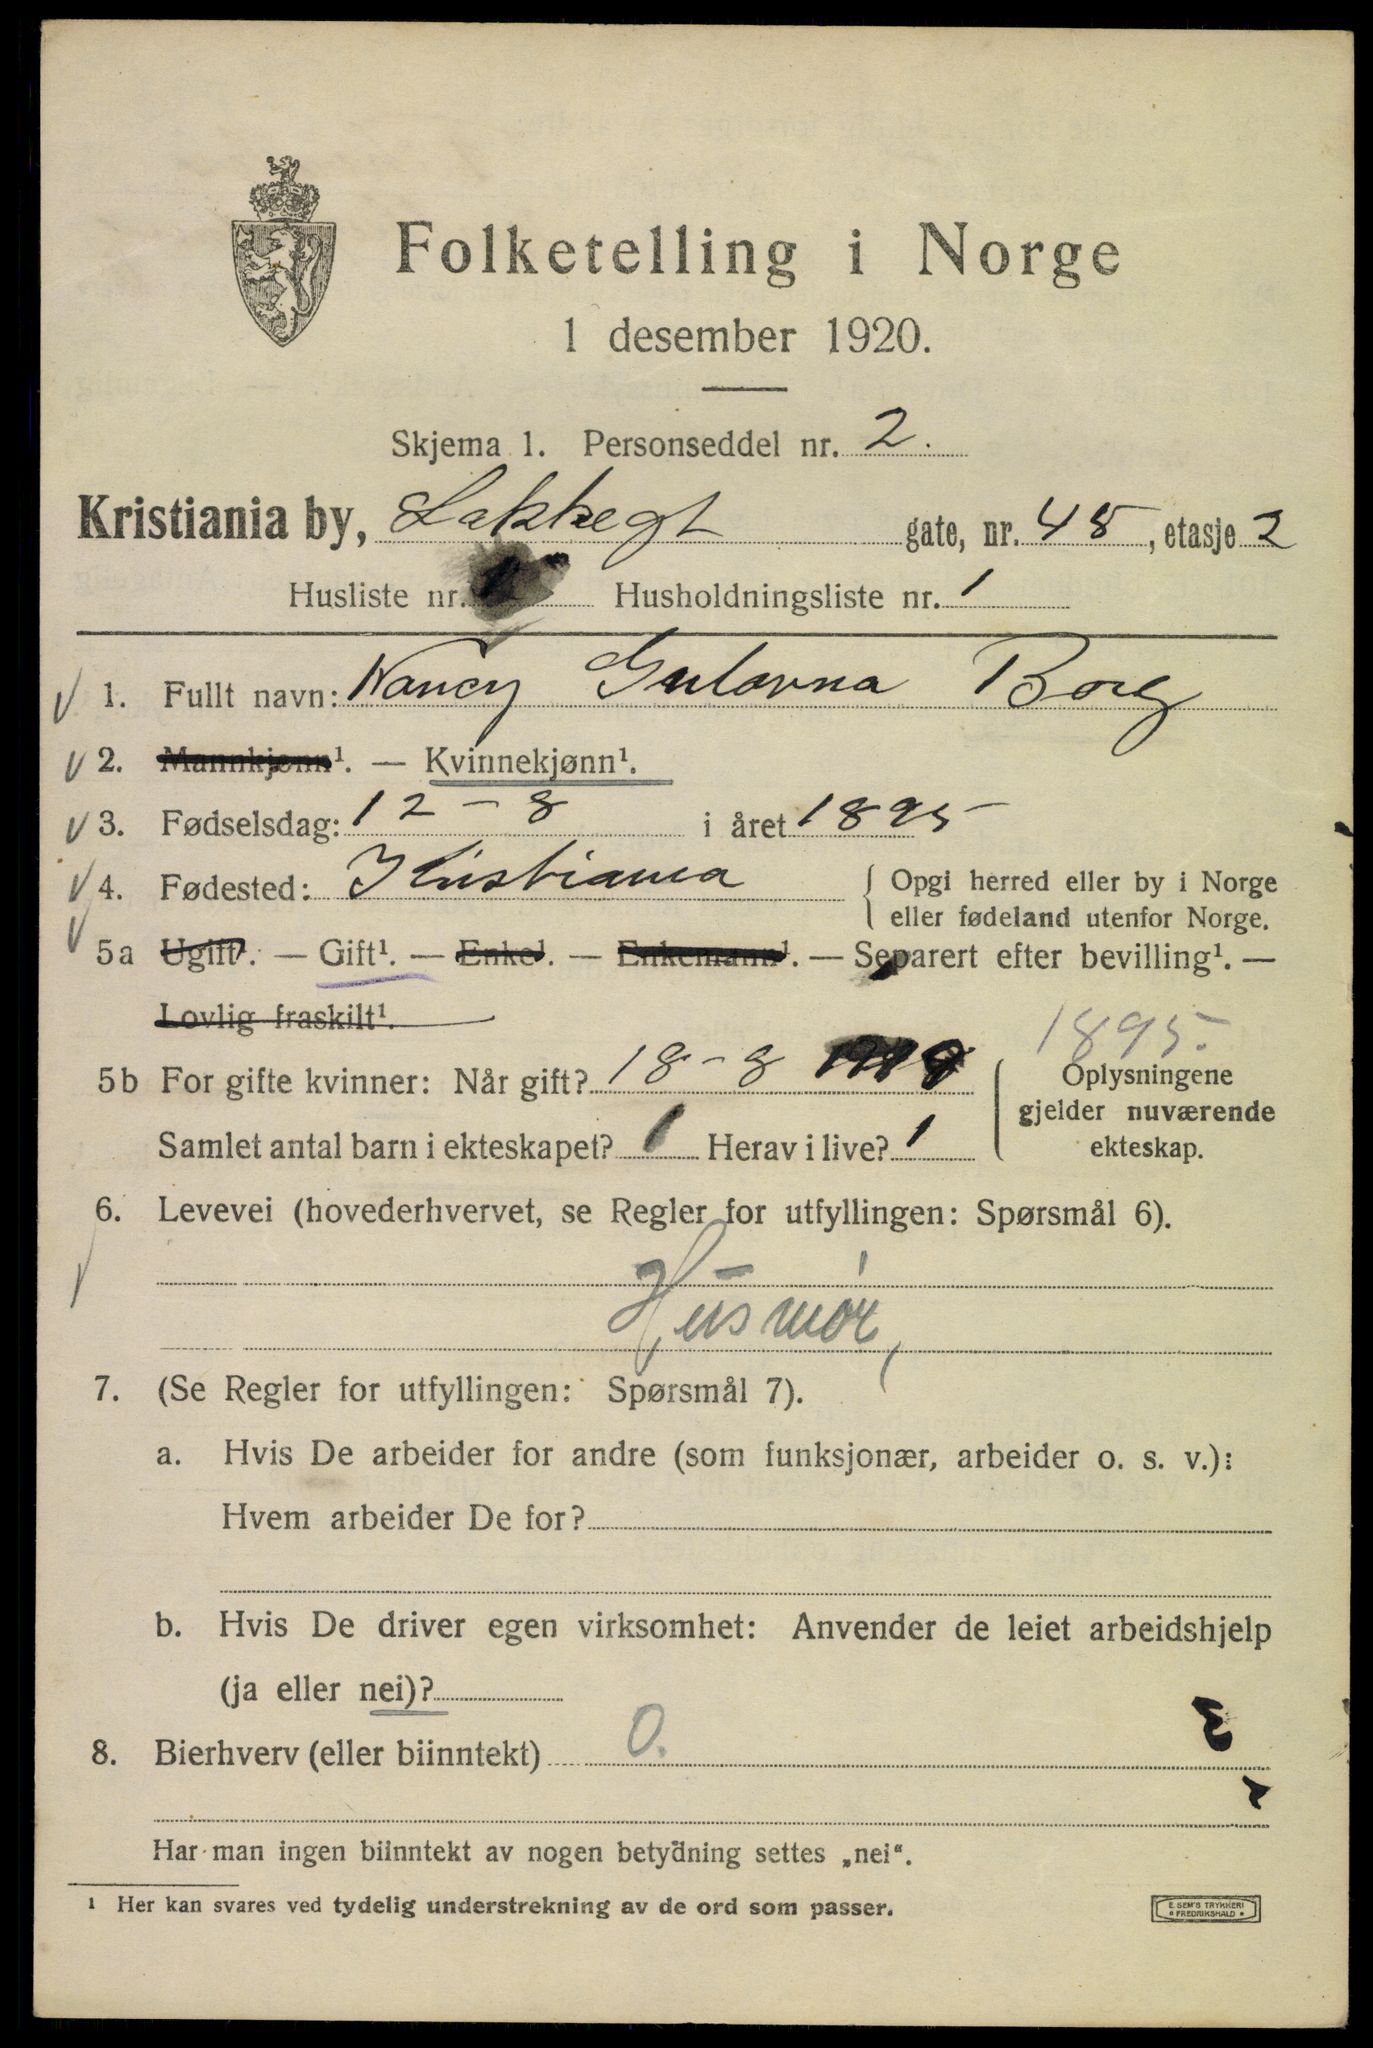 Folketelling i Norge
1 desember 1920.
Skjema 1. Personseddel nr. 2.
Kristiania by, Lakkegt gate, nr. 48, etasje 2
Husliste nr. Husholdningsliste nr. 1
1. Fullt navn: Nancy Borg
2. Mannkjønn¹. — Kvinnekjønn¹.
3. Fødselsdag: 12 – 8 i året 1895
4. Fødested: Kristiania { Opgi herred eller by i Norge
eller fødeland utenfor Norge.
5a Ugift¹. — Gift¹. — Enke¹. — Enkemann¹. — Separert efter bevilling¹. —
Lovlig fraskilt¹.
1895.
5b For gifte kvinner: Når gift? 18 – 8 { Oplysningene
gjelder nuværende
Samlet antal barn i ekteskapet? 1 Herav i live? 1 ekteskap.
6. Levevei (hovederhvervet, se Regler for utfyllingen: Spørsmål 6).
Husmor,
7. (Se Regler for utfyllingen: Spørsmål 7).
a. Hvis De arbeider for andre (som funksjonær, arbeider o. s. v.):
Hvem arbeider De for?
b. Hvis De driver egen virksomhet: Anvender de leiet arbeidshjelp
(ja eller nei)?
8. Bierhverv (eller biinntekt) 0.
Har man ingen biinntekt av nogen betydning settes „nei“.
¹ Her kan svares ved tydelig understrekning av de ord som passer.
E. SEM'S TRYKKERI
FREDRIKSHALD